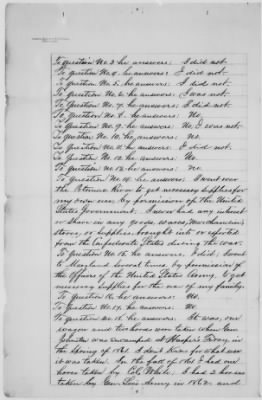 To question No. 3. he answers: I did not.
To question No. 4. he answers: I did not.
To question No. 5. he answers: I did not.
To question No. 6. he answers: I was not.
To question No. 7. he answers: I did not.
To question No. 8. he answers: No.
To question No. 9. he answers: No, I was not.
To question No. 10. he answers: No.
To question No. 11. he answers: I did not.
To question No. 12. he answers: No.
To question No. 13. he answers: No.
To question No. 14. he answers: I went over
the Potomac River to get necessary supplies for
my own use by permission of the United
States Government. I never had any interest
or share in any goods, wares, merchandise,
stores, or supplies brought into or exported
from the Confederate States during the war.
To question No. 15. he answers: I did; I went
to Maryland several times by permission of
the Officers of the United States Army to get
necessary supplies for the use of my family.
To question No. 16. he answers: No.
To question No. 17. he answers: No.
To question No. 18. he answers: It was, one
wagon and two horses were taken when Gen
Johnston was encamped at Harper's Ferry, in
the spring of 1861. I don't know for what use
it was taken. In the fall of 1861 I had one
horse taken by Col. White. I had 2 horses
taken by Gen. Lee's Army in 1862 and